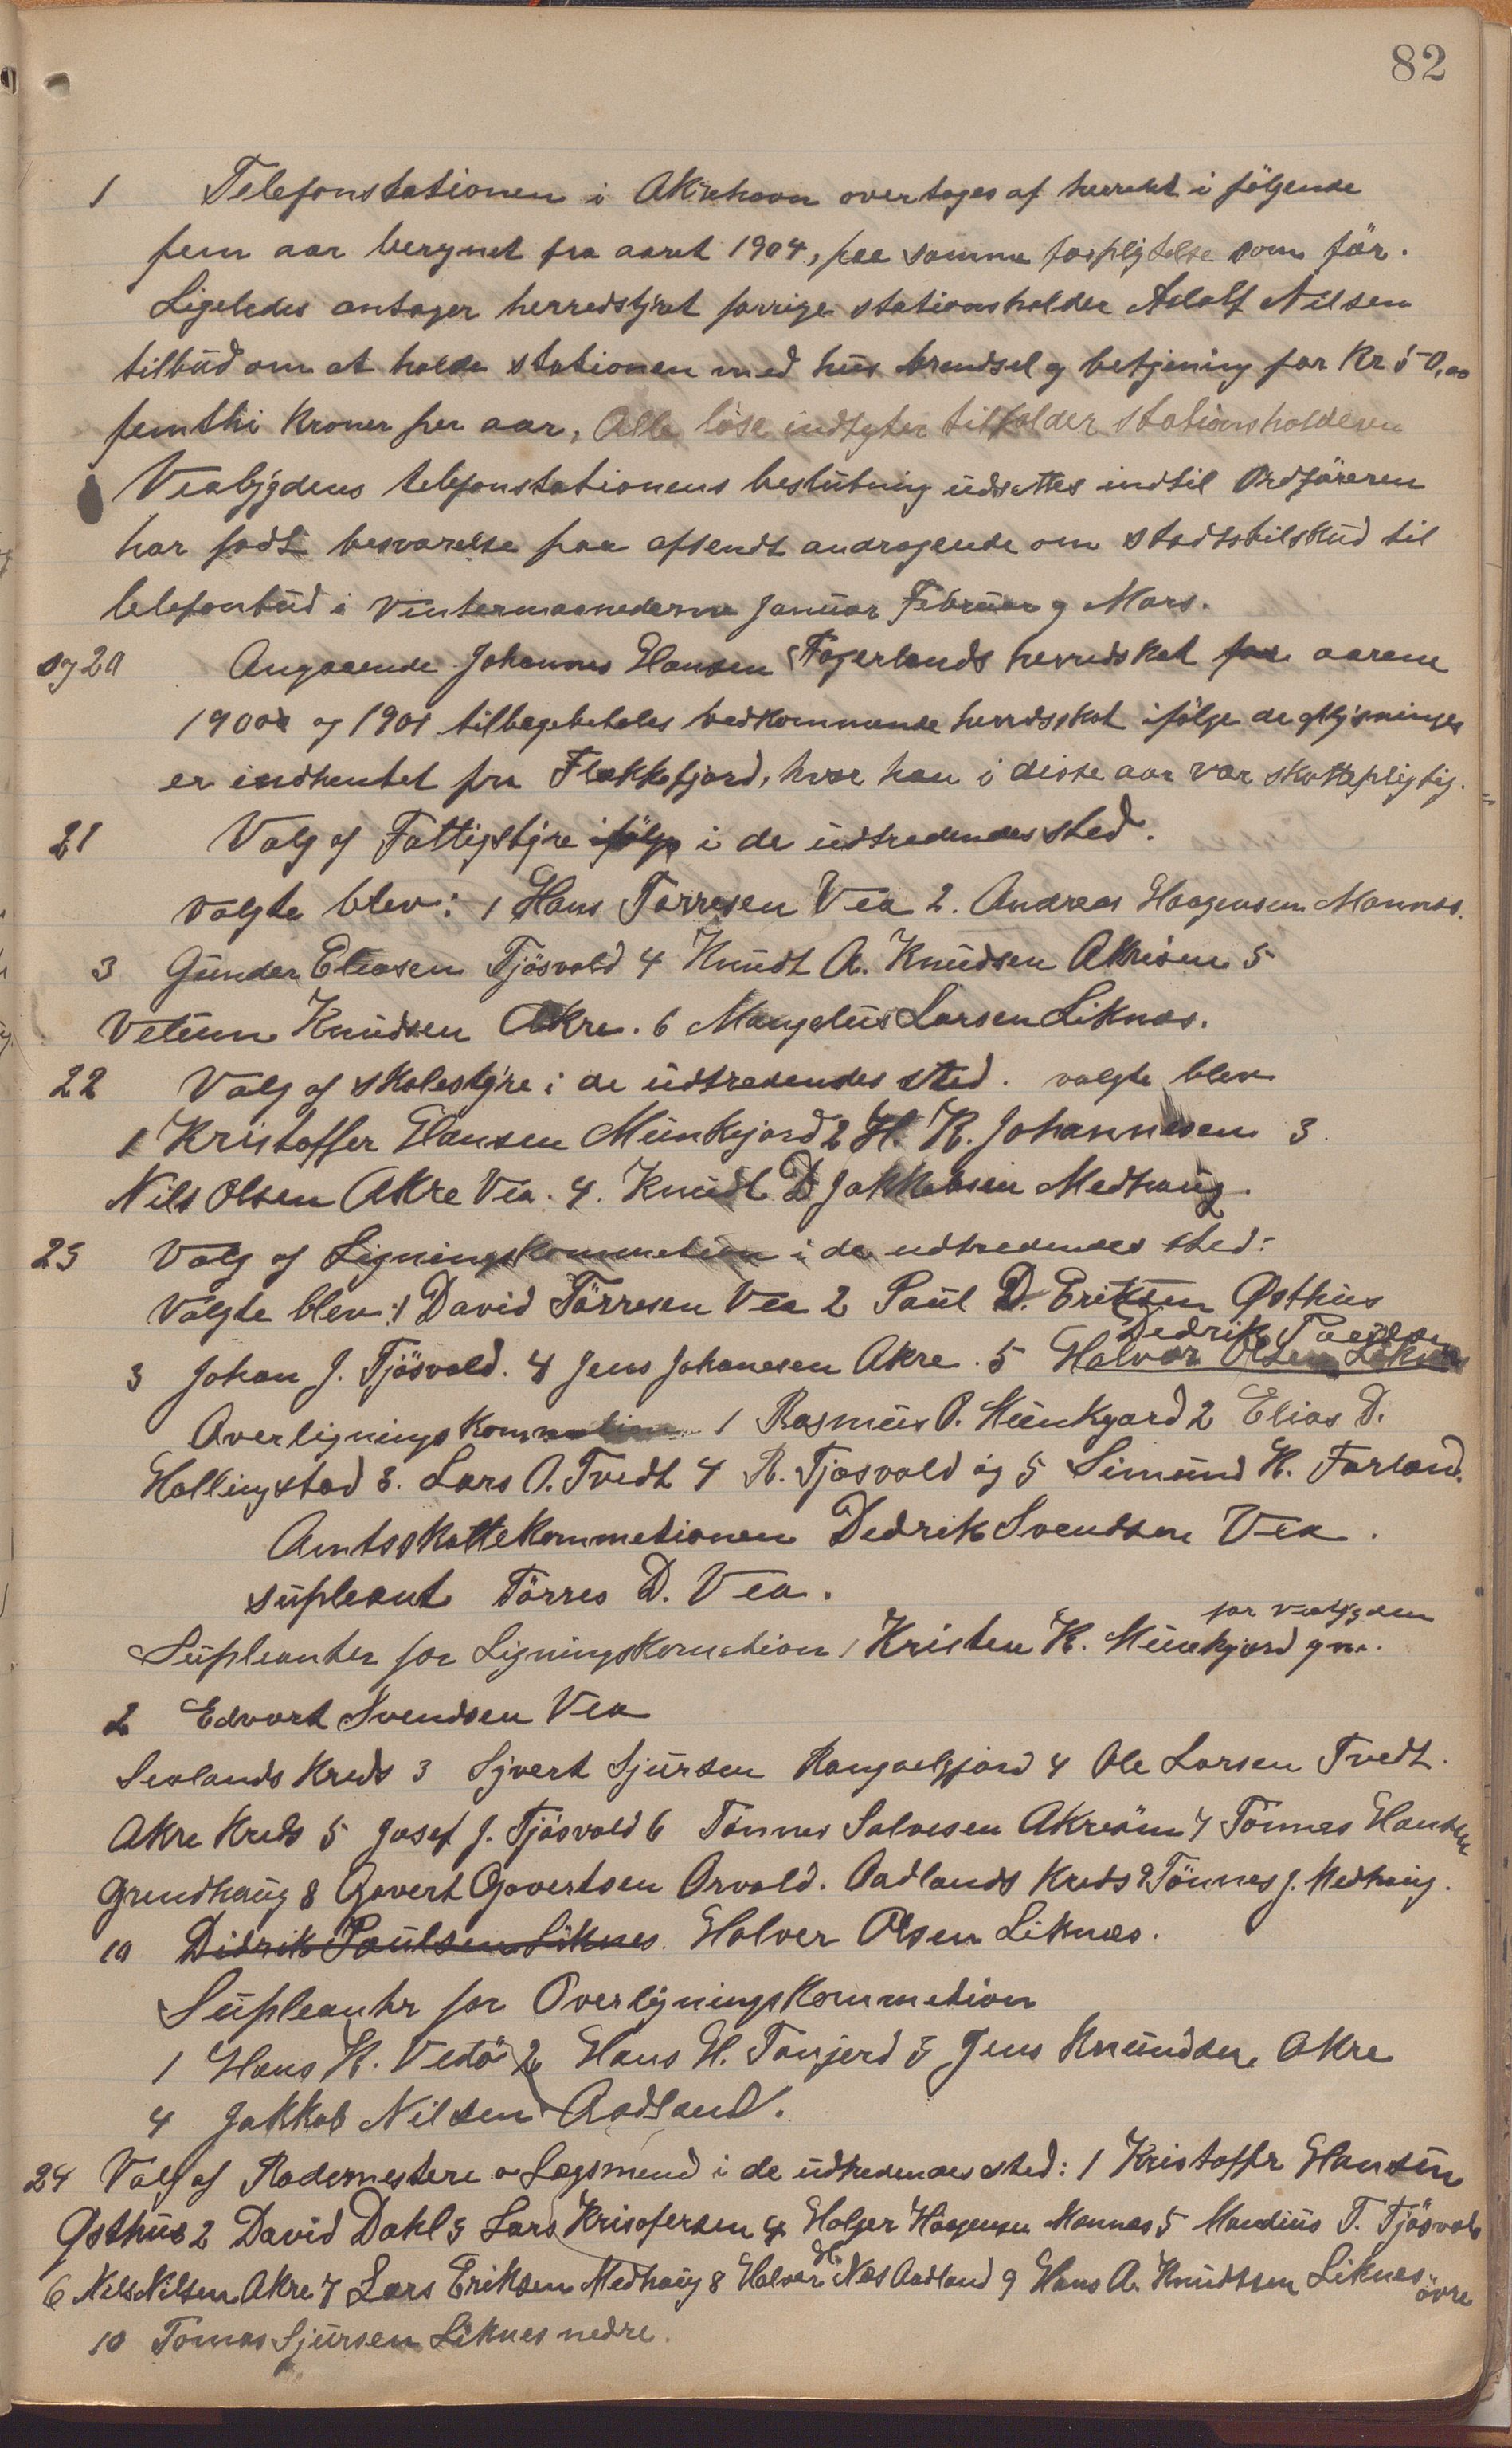 82
1 Telefonstationen i Akrehavn overtages af herredet i fölgende
fem aar beregnet fra aaret 1904, paa samme forpligtelse som för.
Ligeledes antager herredstyret forrige stationsholder Adolf Nilsen
tilbud om at holde stationen med hus brendsel og betjening for Kr 50,00
femthi Kroner per aar, Alle löse indtgter tilfalder stationsholderen
Veabygdens telefonstationens beslutning udsettes indtil Ordföreren
har fodt besvarelse paa afsendt andragende om stadstilskud til
telefonbud i Vintermaanederne Januar Februar og Mars.
sg 20 Angaaende Johannes Hansen Fagerlands herredskat for aarene
1900 og 1901 tilbagebetales vedkommende herredsskat ifölge de oplysninger
er indhentet fra Flekkefjord, hvor han i disse aar var skattepligtig.
21 Valg af Fattigstyre ifölge i de udtredendes sted.
valgte blev: 1 Hans Torresen Vea 2. Andreas Haagensen Mannes.
3 Gunder Eliasen Tjösvold 4 Knudt A. Knudsen Akreöen 5
Knudsen Akre. 6 Mangelus Larsen Liknes.
22 Valg af skolestyre i de udtredendes sted. valgte blev
1 Kristoffer Hansen Munkejord 2 H. K. Johannesen 3.
Nils Olsen Akre Vea. 4. Knudt D Jakkobsen Medhaug.
23 Valg af Ligningskommetion i de udtredendes sted:
Valgte blev: 1 David Törresen Vea 2 Paul D. Eriksen Østhus
Dedrik Paulsen
3 Johan J. Tjösvold. 4 Jens Johanesen Akre. 5 Halvor Olsen Liknes
Overlignings kommetion 1 Rasmus O. Munkgard 2 Elias D.
Hallingstad 3. Lars O. Tvedt 4 R. Tjosvold og 5 Simund K. Farland.
Amtsskattekommetionen Dedrik Svendsen Vea.
supleant Törres D. Vea.
for veabygden
Supleanter for Ligningskometion 1 Kristen K. Munkejord
2 Edvart Svendsen Vea
Sevlands Kreds 3 Syvert Sjursen Rangaelgjord 4 Ole Larsen Tvedt.
Akre Kreds 5 Josef J. Tjösvold 6 Tönnes Salvesen Akreöen 7 Tönnes Hansen
Grindhaug 8 Govert Govertsen Orvald. Aadlands Kreds 9 Tönnes J. Medhaug.
10 Didrik Paulsen Liknes. Halver Olsen Liknes.
Supleanter for Overligningskommetion
1 Hans K. Vedö 2 Hans H. Tanjerd 3 Jens Knundsen Akre
4 Jakkob Nilsen Aadland.
24 Valg af Rodemestere o Lagsmend i de udtredendes sted: 1 Kristoffer Hansen
Østhus 2 David Dahl 3 Lars Krisofersen 4 Holger Haagensen Mannes 5 Mandius T. Tjösvold
6 Nels Nilsen Akre 7 Lars Eriksen Medhaug 8 Halvar H. Nes Aadland 9 Hans A. Knudtsen Liknes övre
10 Tomas Sjursen Liknes nedre.